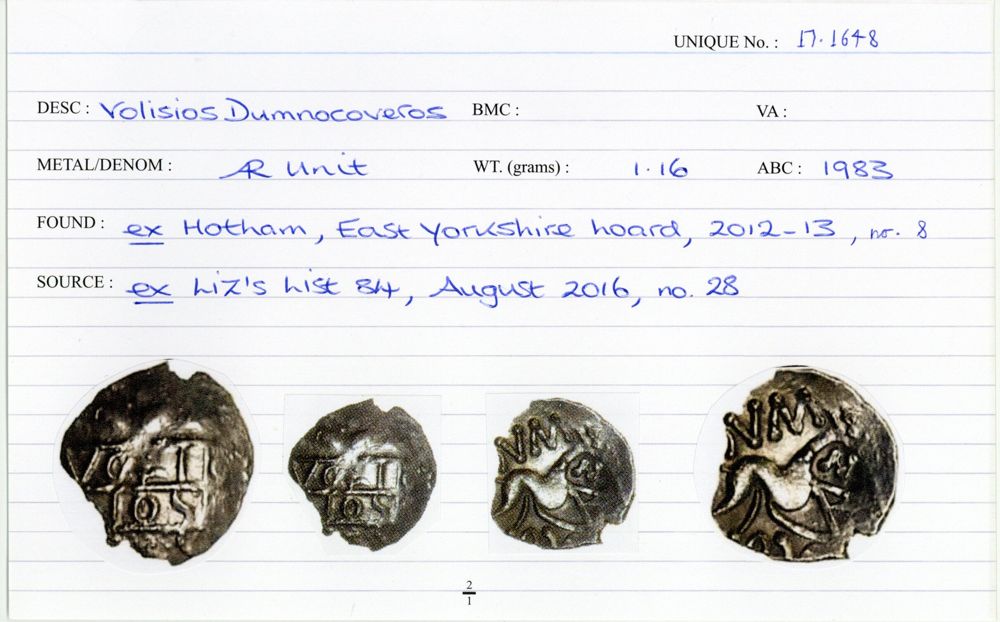 UNIQUE No. : 17·1648
DESC : Volisios Dumnocoveros BMC : VA :
METAL/DENOM : AR Unit WT. (grams) : 1·16 ABC : 1983
FOUND : ex Hotham, East Yorkshire hoard, 2012-13, nr. 8
SOURCE : ex Liz's List 84, August 2016, no. 28
2
1